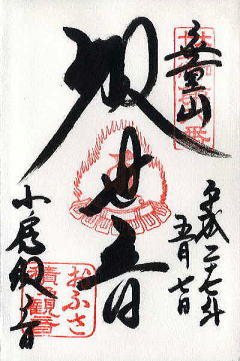 無量山
観世音
平成二十七年
五月七日
小房観音
おふさ
観音